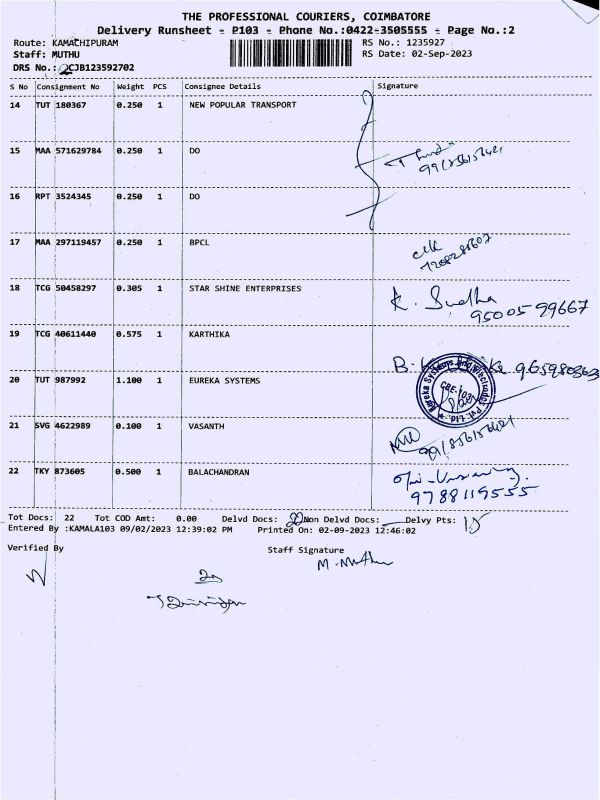 THE PROFESSIONAL COURIERS, COIMBATORE
Delivery Runsheet - P103 - Phone No.:0422-3505555 - Page No.:2
Route: KAMACHIPURAM RS No.: 1235927
Staff: MUTHU RS Date: 02-Sep-2023
DRS No.: 2CJB123592702
S No Consignment No Weight PCS Consignee Details Signature
14 TUT 180367 0.250 1 NEW POPULAR TRANSPORT
15 MAA 571629784 0.250 1 DO
16 RPT 3524345 0.250 1 DO
17 MAA 297119457 0.250 1 BPCL
18 TCG 50458297 0.305 1 STAR SHINE ENTERPRISES K. Sudha
95005 99667
19 TCG 40611440 0.575 1 KARTHIKA
20 TUT 987992 1.100 1 EUREKA SYSTEMS
21 SVG 4622989 0.100 1 VASANTH
22 TKY 873605 0.500 1 BALACHANDRAN
9788119555
Tot Docs: 22 Tot COD Amt: 0.00 Delvd Docs: 22 Non Delvd Docs: Delvy Pts: 15
Entered By :KAMALA103 09/02/2023 12:39:02 PM Printed On: 02-09-2023 12:46:02
Verified By Staff Signature
M. Muthu